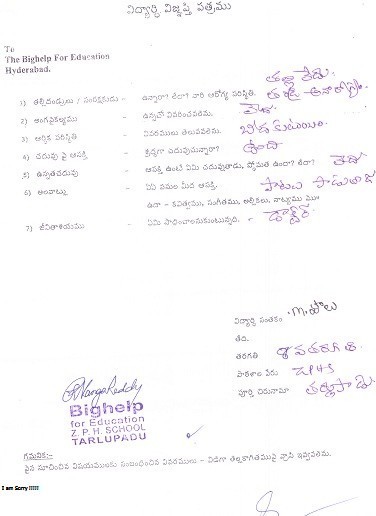 విద్యార్థి విజ్ఞప్తి పత్రము
To
The Bighelp For Education
Hyderabad.
తల్లి లేదు
1) తల్లిదండ్రులు / సంరక్షకుడు - ఉన్నారా? లేదా? వారి ఆరోగ్య పరిస్థితి. తండ్రి అనారోగ్యం
2) అంగవైకల్యము - ఉన్నచో వివరించవలెను. లేదు
3) ఆర్థిక పరిస్థితి - వివరములు తెలుపవలెను. బీద కుటుంబం
4) చదువు పై ఆసక్తి - శ్రద్ధగా చదువుచున్నారా? ఉంది
5) ఉన్నతచదువు - ఆసక్తి ఉంటే ఏమి చదువుతాడు, స్తోమత ఉందా? లేదా? లేదు
6) అలవాట్లు - ఏ పనుల మీద ఆసక్తి. పాటలు పాడుటాకు
ఉదా - కవిత్వము, సంగీతము, అల్లికలు, నాట్యము
7) జీవితాశయము - ఏమి సాధించాలనుకుంటున్నది. - డాక్టర్
విద్యార్థి సంతకం .M.
తేది.
తరగతి 9 వ తరగతి
పాఠశాల పేరు ZPHS
పూర్తి చిరునామా తర్లుపాడు
Bighelp
for Education
Z. P. H. SCHOOL
TARLUPADU
గమనిక:-
పైన సూచించిన విషయములకు సంబంధించిన వివరములు - విడిగా తెల్లకాగితముపై వ్రాసి ఇవ్వవలెను.
I am Sorry !!!!!